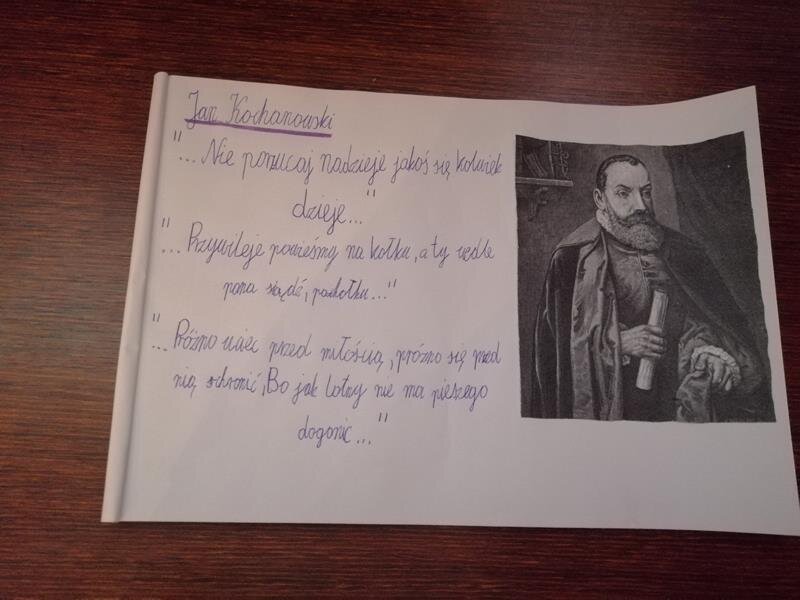 Jan Kochanowski
"... Nie porzucaj nadzieje jakoś się kolwiek
dzieje..."
"... Przywileje powieśmy na kołku, a ty wedle
pana siądź, pachołku..."
"... Próżno uciec przed miłością, próżno się przed
nią schronić, Bo jak lotny nie ma pieszego
dogonić..."